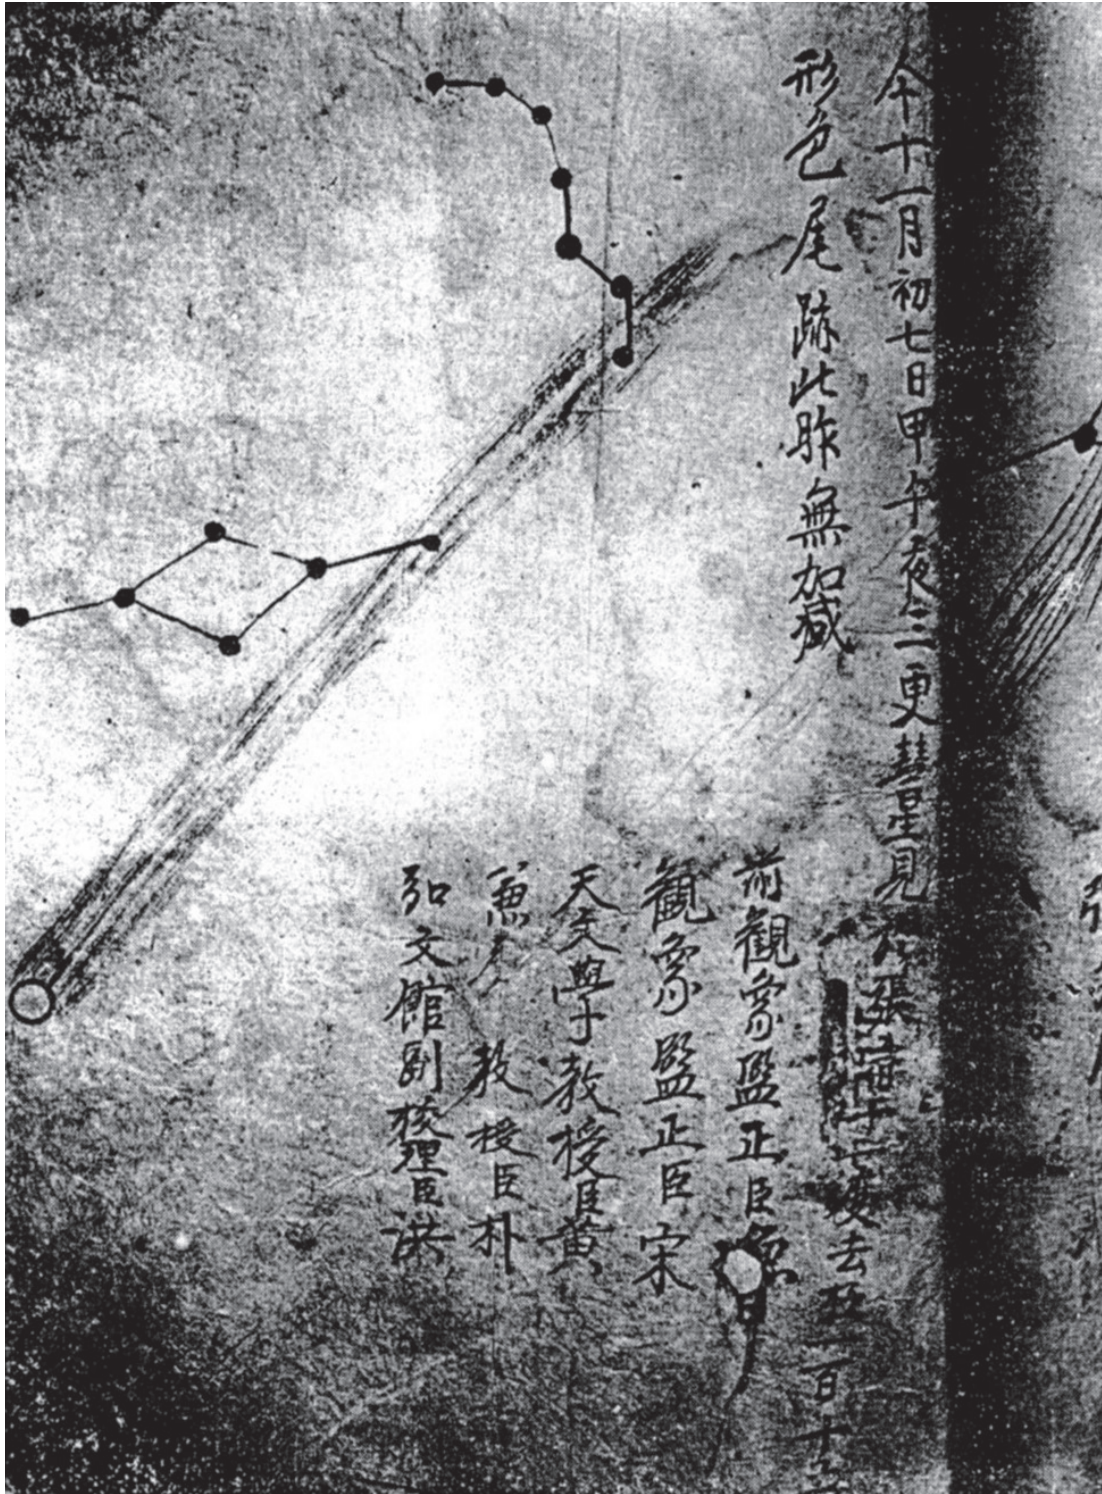 今十一月初七日甲午夜三更彗星見 張宿十七度去極一百十
形色尾跡此昨無加減
前觀象監正臣
觀象監正臣宋
天文學教授臣黃
兼 教授臣朴
弘文館副校理臣洪